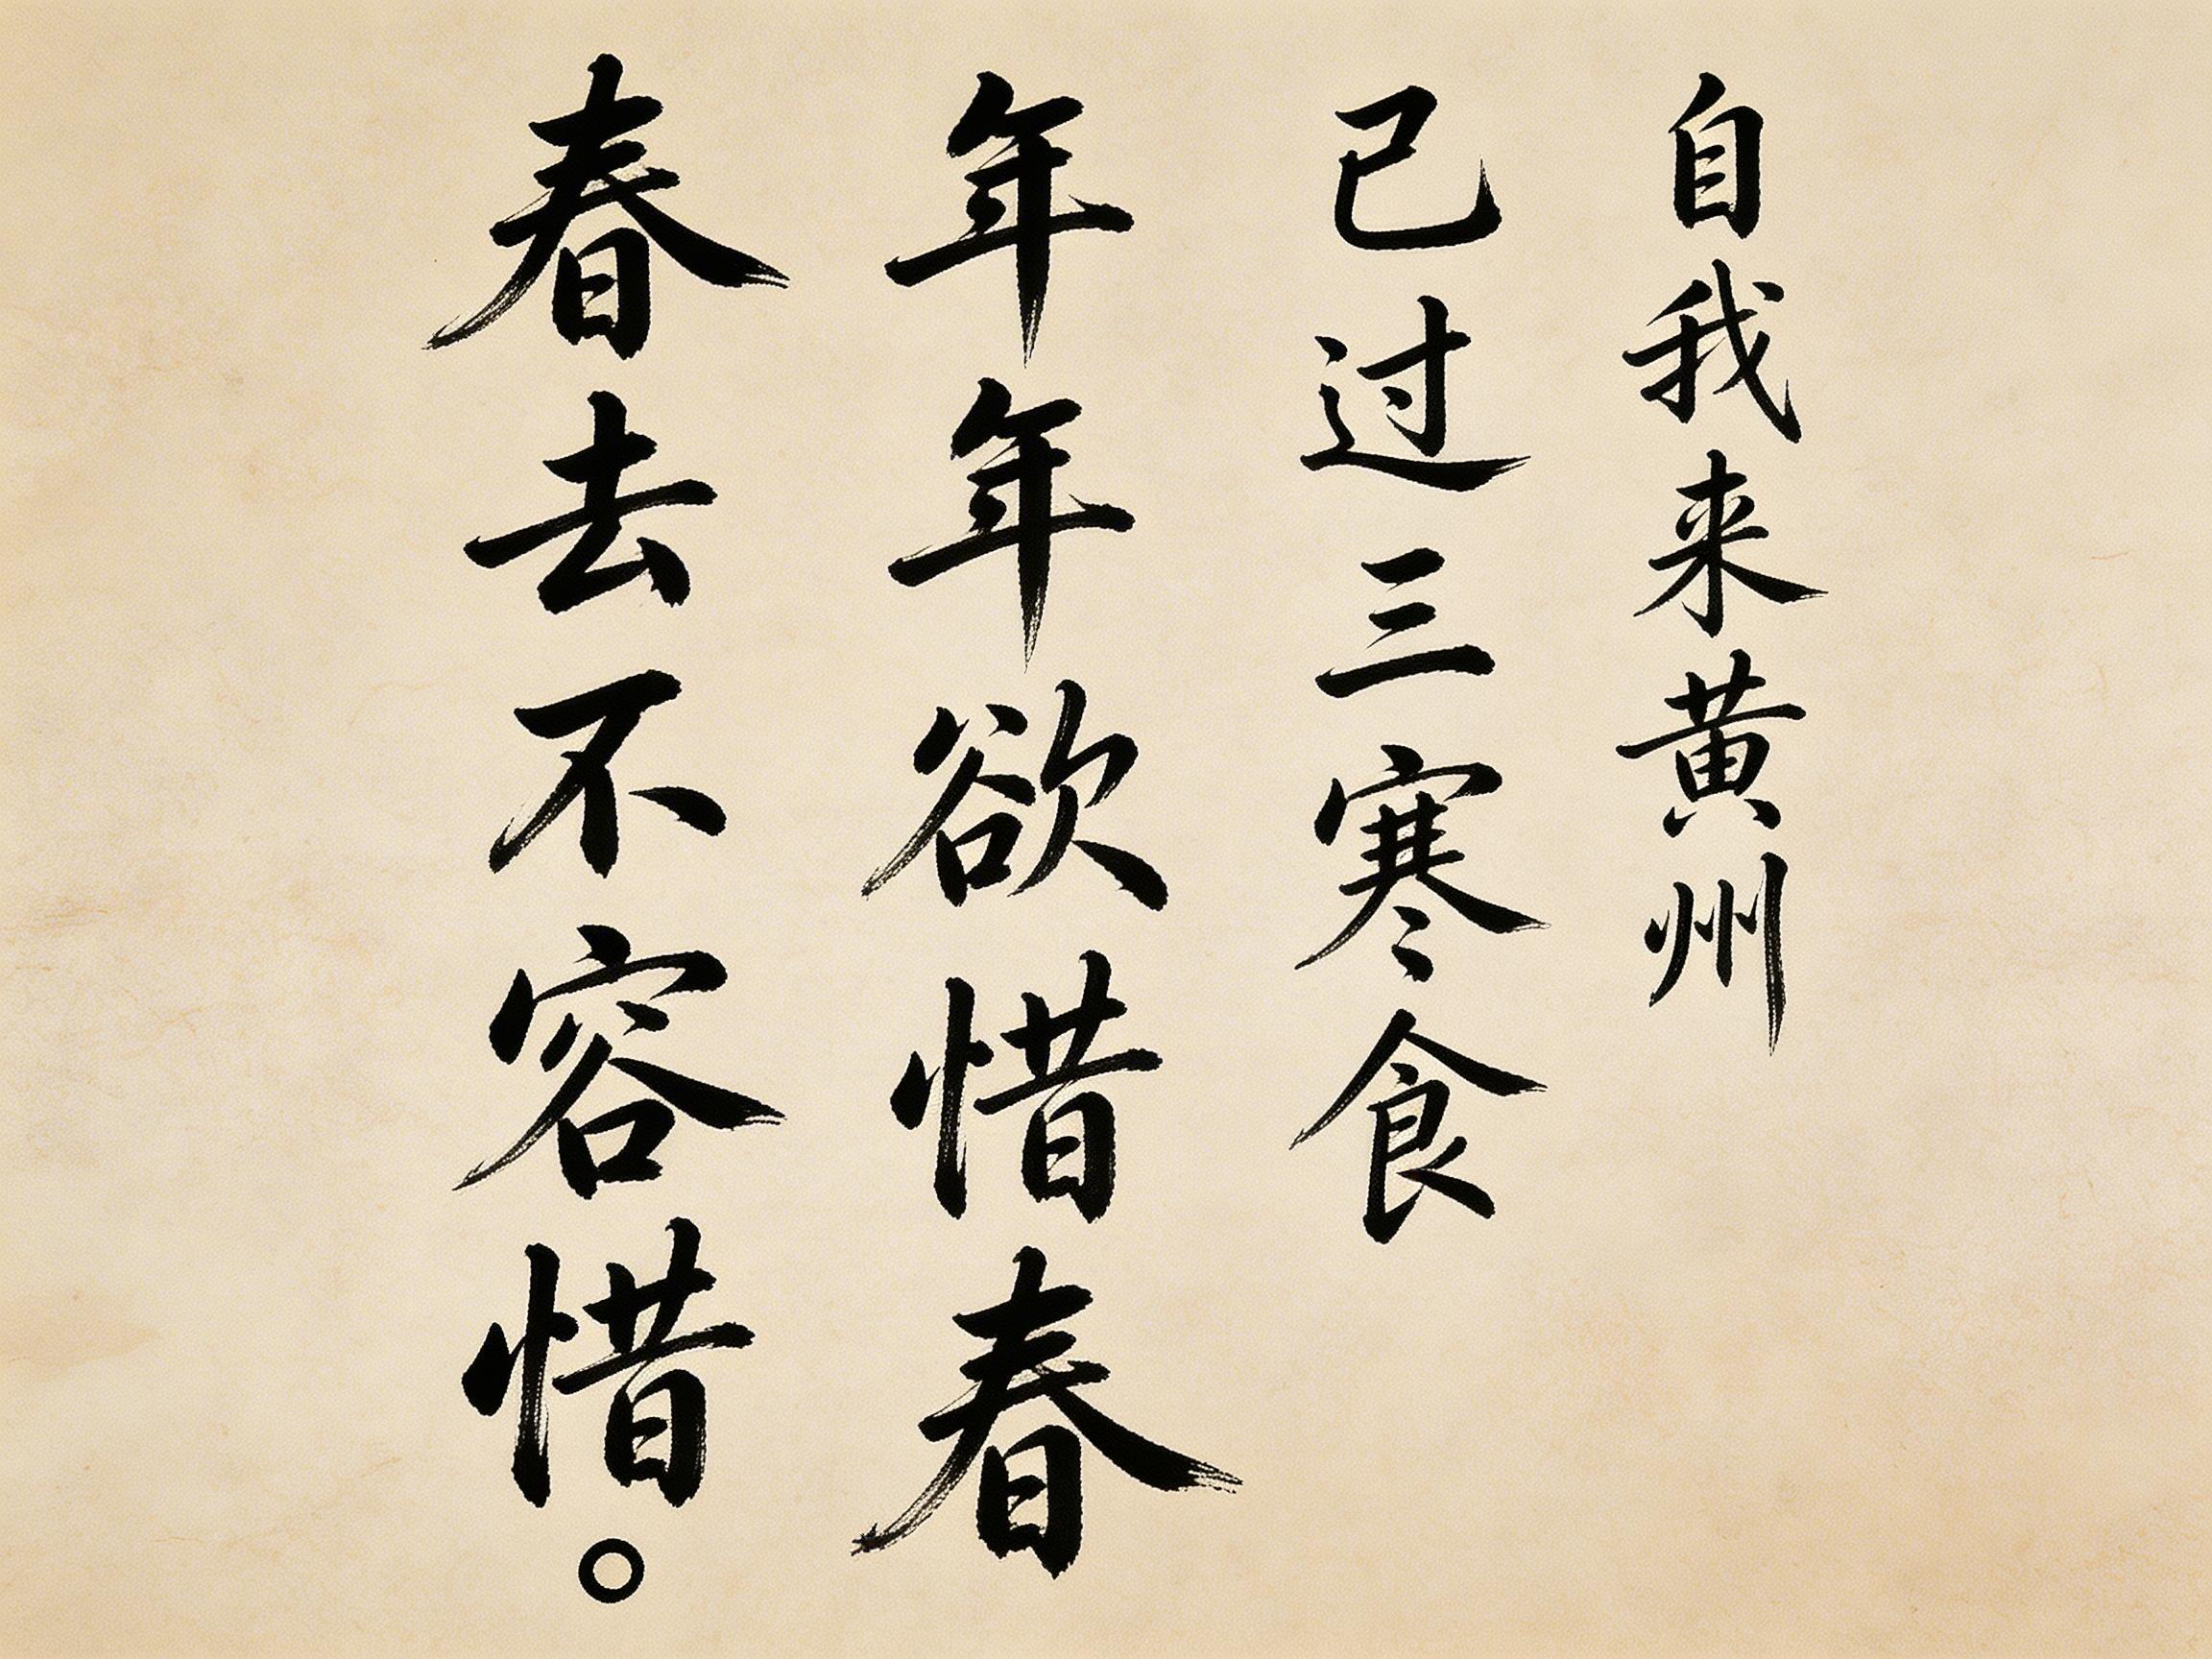 自我来黄州
已过三寒食
年年欲惜春
春去不容惜。